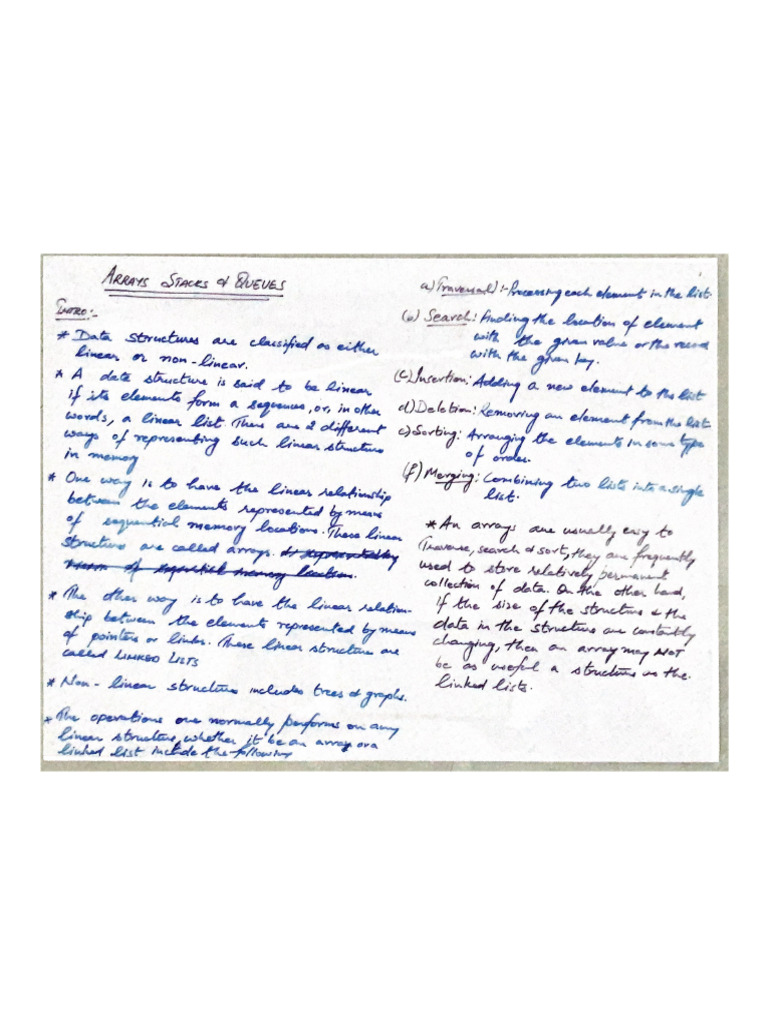 ARRAYS STACKS & QUEUES
INTRO:-
* Data structures are classified as either
linear or non-linear.
* A data structure is said to be linear
if its elements form a sequences, or, in other
words, a linear list. There are 2 different
ways of representing such linear structure
in memory
* One way is to have the linear relationship
between the elements represented by means
of sequential memory locations. These linear
structure are called arrays.
* The other way is to have the linear relation-
ship between the elements represented by means
of pointers or links. These linear structure are
called LINKED LISTS
* Non-linear structure includes trees & graphs.
* The operations are normally performs on any
linear structure, whether it be an array or a
linked list include the following
a) Traversal :- Processing each element in the list.
(b) Search: finding the location of element
with the given value or the record
with the given key.
(c) Insertion: Adding a new element to the list
d) Deletion: Removing an element from the list
e) Sorting: Arranging the elements in some type
of order.
(f) Merging: Combining two lists into a single
list.
* An arrays are usually easy to
Traverse, search & sort, they are frequently
used to store relatively permanent
collection of data. On the other hand,
if the size of the structure & the
data in the structure are constantly
changing, then an array may NOT
be as useful a structure as the
linked lists.